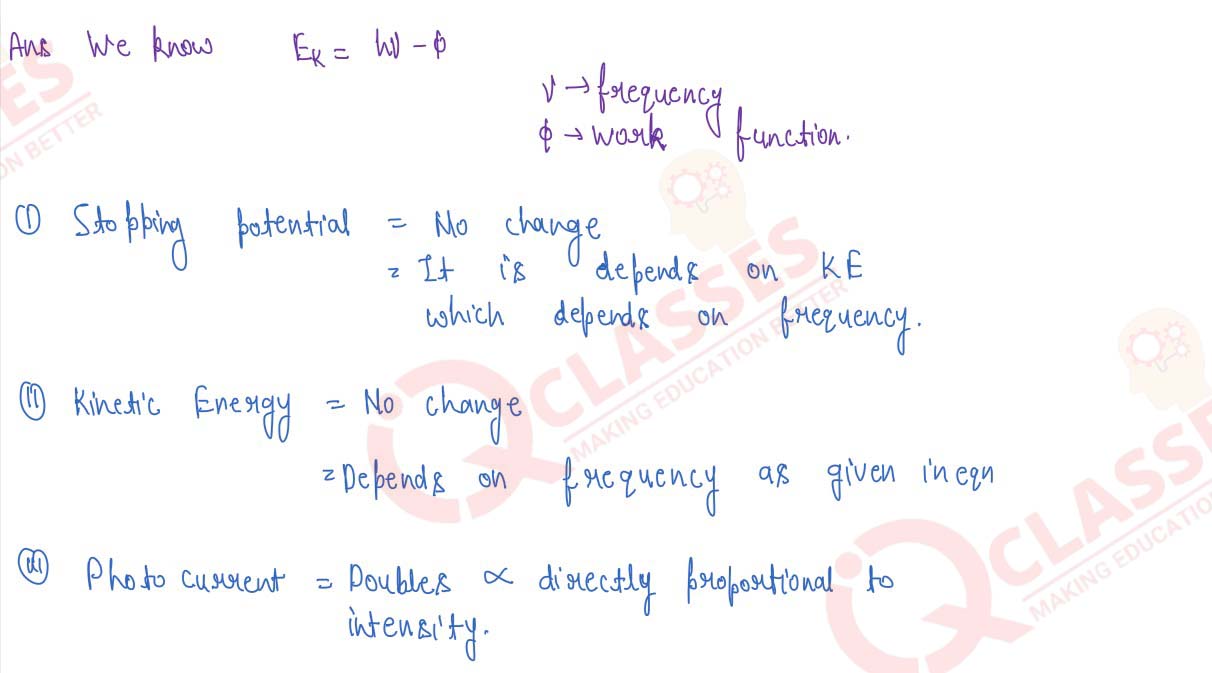 Ans We know Eₖ = hν - ϕ
ν → frequency
ϕ → work function.
ES
ON BETTER
① Stopping potential = No change
= It is depends on KE
which depends on frequency.
CLASSES
MAKING EDUCATION BETTER
ⅱ Kinetic Energy = No change
= Depends on frequency as given in eqn
ⅲ Photo current = Doubles ∝ directly proportional to
intensity.
CLASSES
MAKING EDUCATION